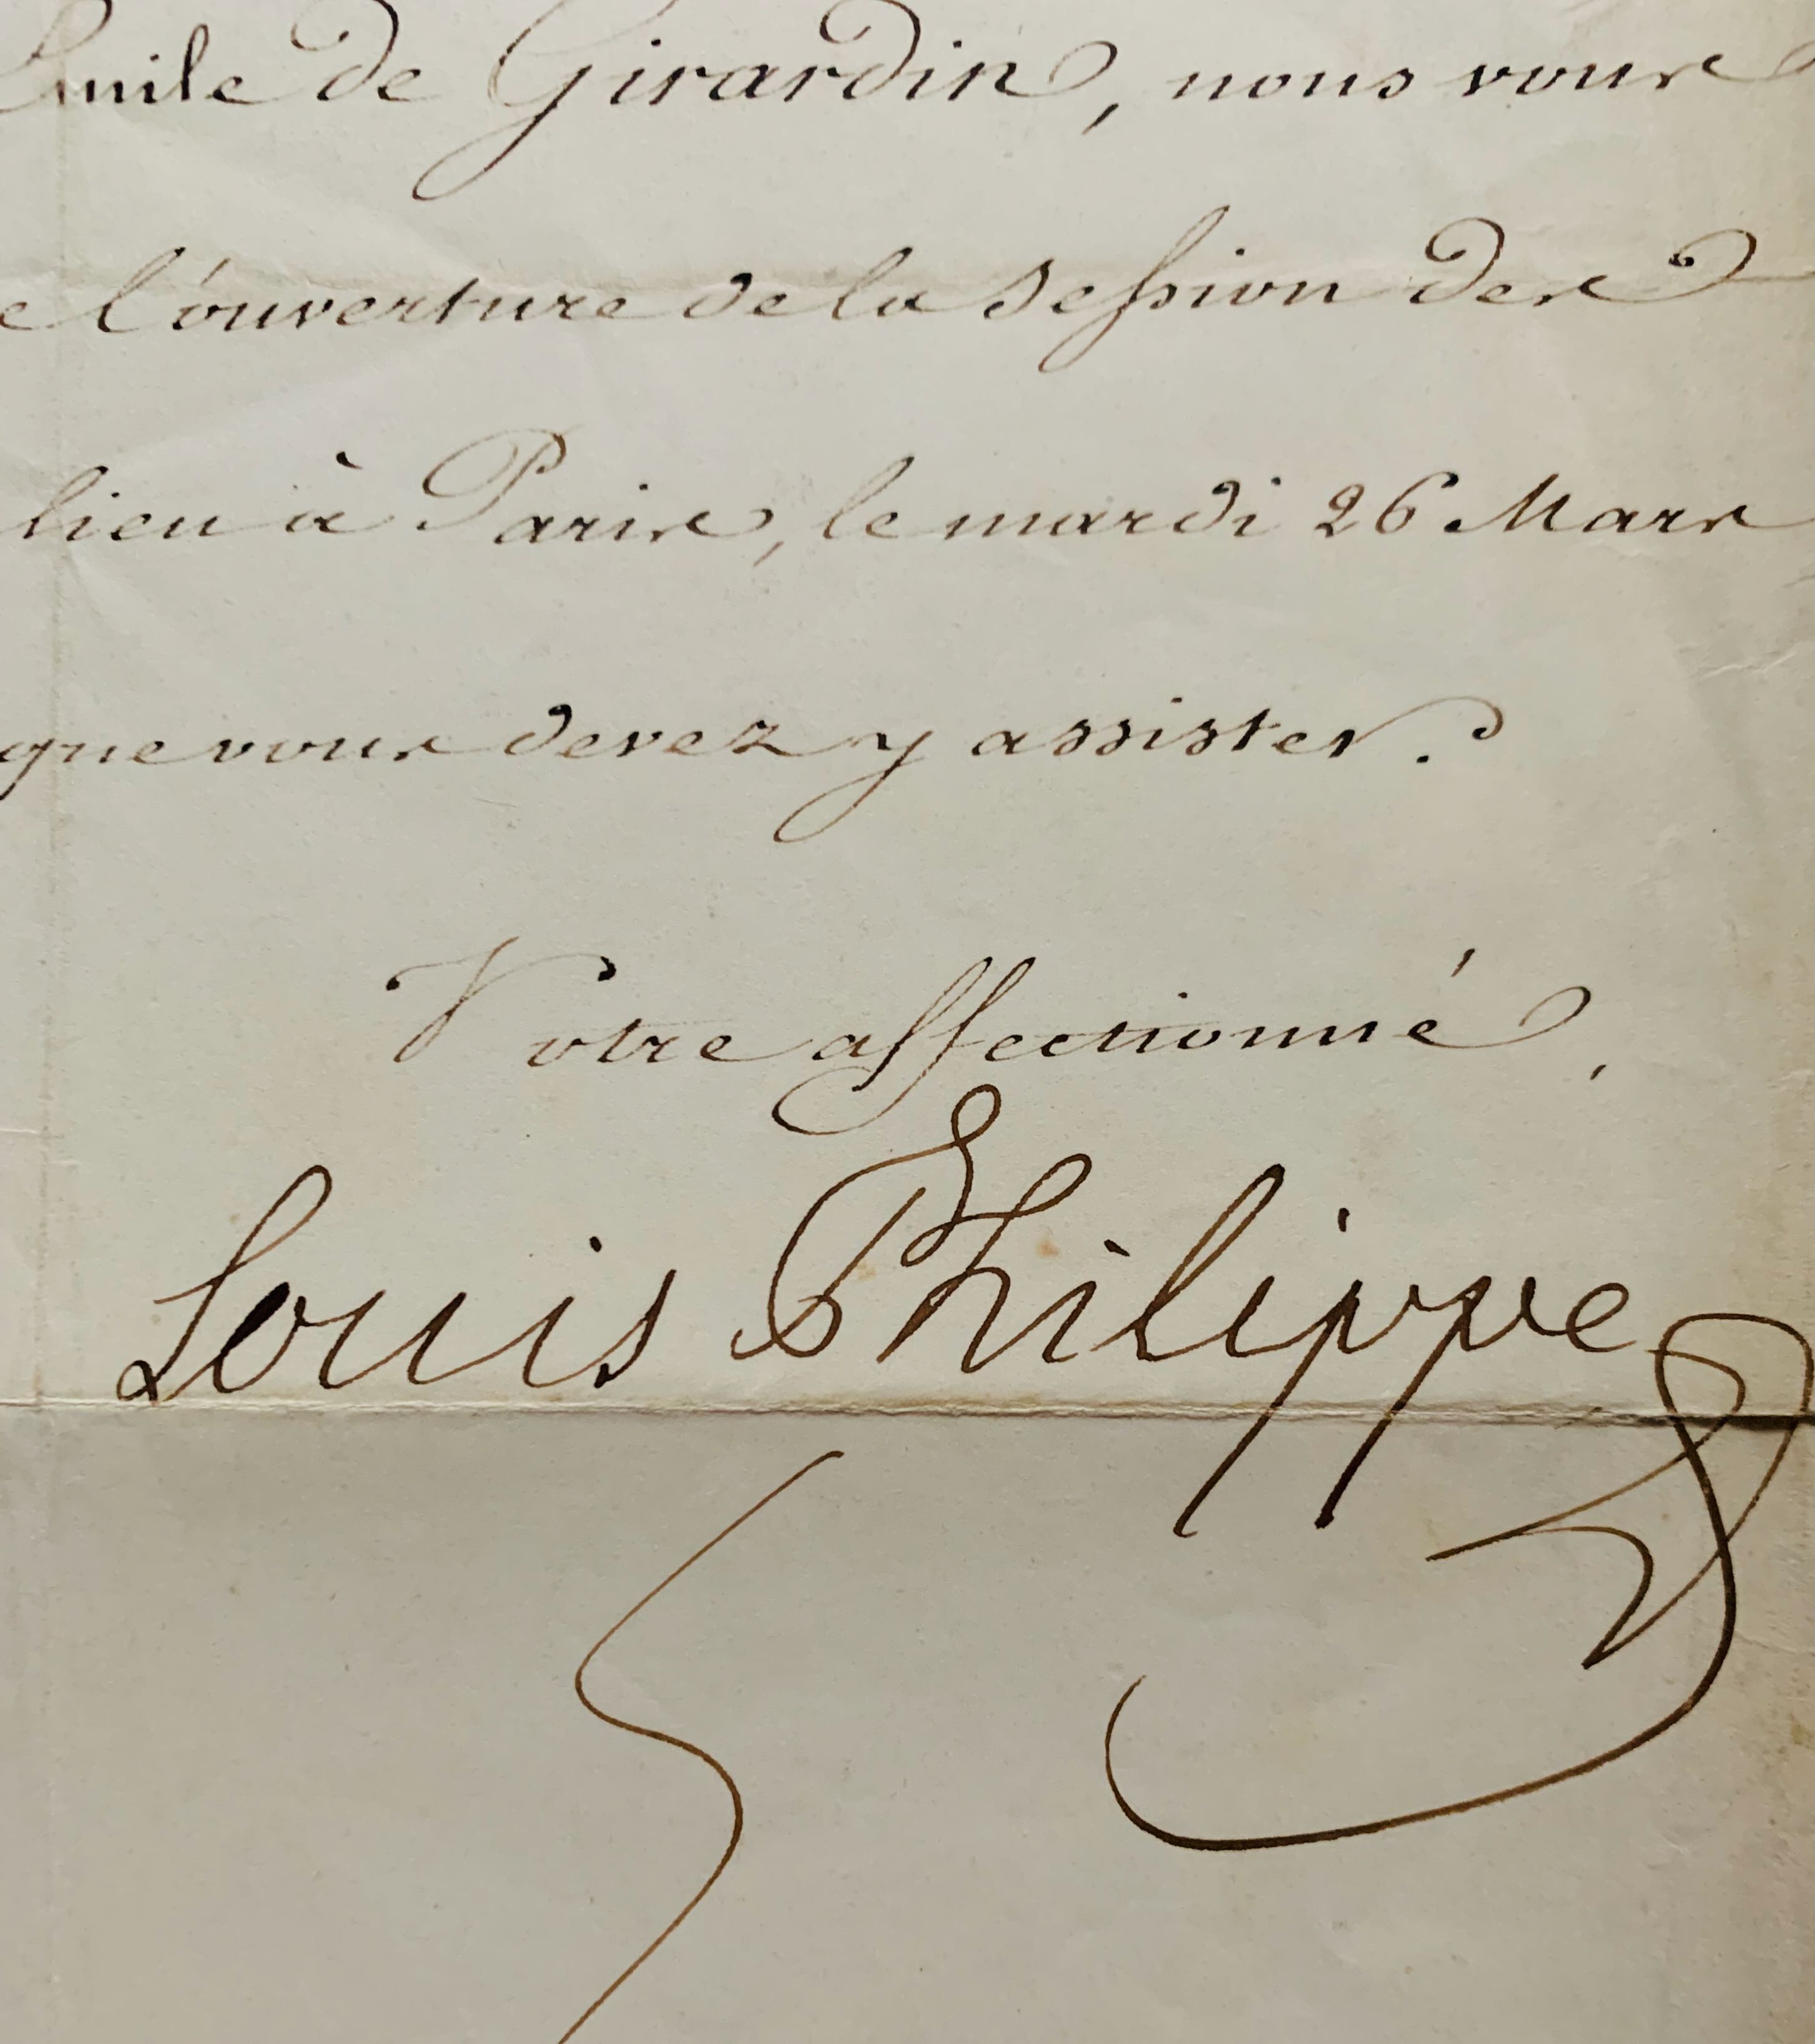 Emile de Girardin, nous vous
e l'ouverture de la Session des
lieu à Paris, le mardi 26 Mars
que vous devez y assister.
Votre affectionné,
Louis Philippe